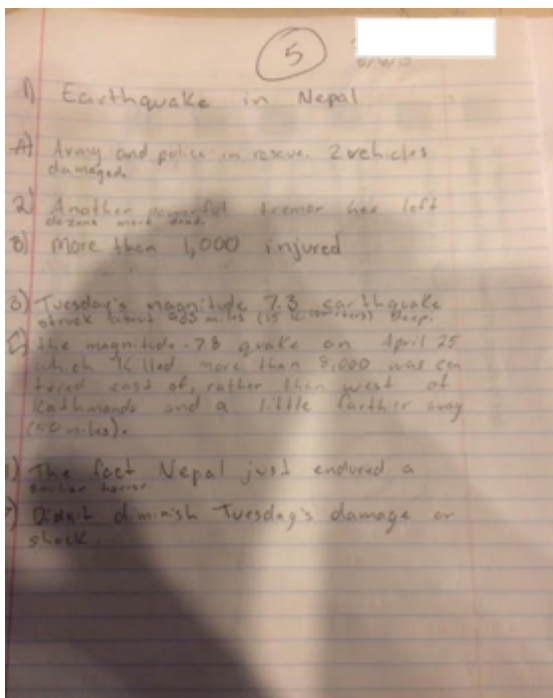 5
1) Earthquake in Nepal
A) Army and police in rescue. 2 vehicles
damaged.
2) Another powerful tremor has left
dozens more dead.
B) more then 1,000 injured
3) Tuesday's magnitude 7.3 earthquake
struck about miles (15 kilometers) deep.
C) the magnitude-7.8 quake on April 25
which killed more than 8,000 was cen
tered east of, rather than west of
Kathmandu and a little farther away
(50 miles).
The fact Nepal just endured a
similar horror.
Didn't diminish Tuesday's damage or
shock.